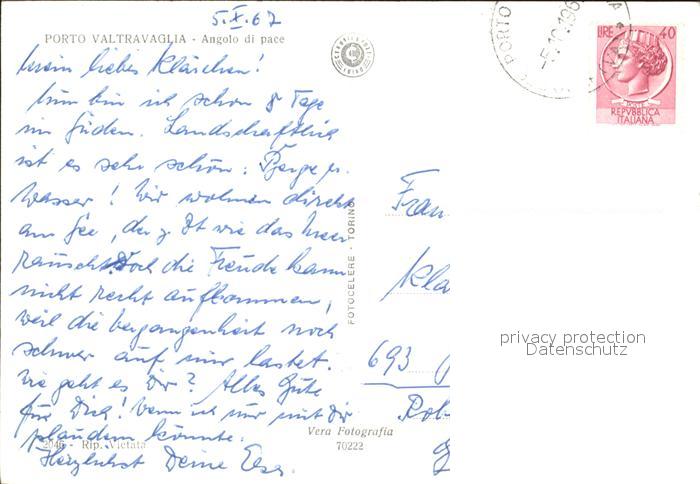 5.X.67
PORTO VALTRAVAGLIA - Angolo di pace
Mein liebes Klärchen!
Nun bin ich schon 8 Tage
im Süden. Landschaftlich
ist es sehr schön: Berge u.
Wasser! Wir wohnen direkt
am See, der z. Zt wie das Meer
rauscht. Doch die Freude kann
nicht recht aufkommen,
weil die Vergangenheit noch
schwer auf mir lastet.
Wie geht es Dir? Alles Gute
für Dich! Wenn ich nur mit Dir
plaudern könnte.
2046 - Rip. Vietata
Herzlichst Deine
FOTOCELERE - TORINO
Vera Fotografia
70222
PORTO
LIRE 40
REPVBBLICA
ITALIANA
Frau
Kla
693
Rob
privacy protection
Datenschutz